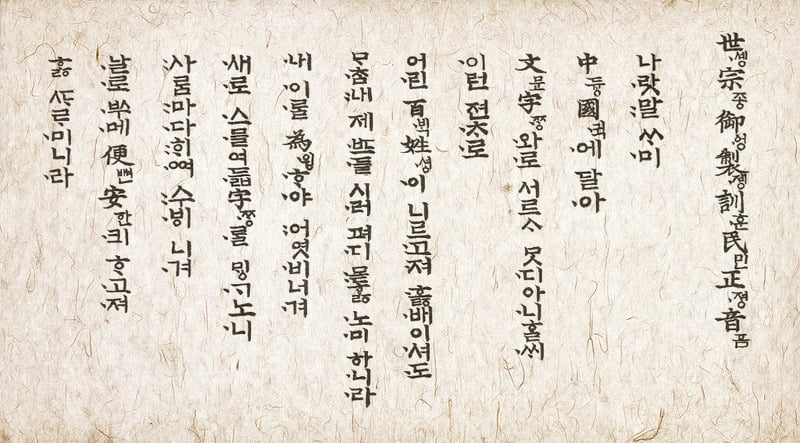 世솅宗종御엉製졩訓훈民민正졍音ᅙᅳᆷ
나랏말 ᄊᆞ미
中듕國귁에 달아
文문字ᄍᆞᆼ와로 서르 ᄉᆞᄆᆞᆺ디아니ᄒᆞᆯᄊᆡ
이런 젼ᄎᆞ로
어린 百ᄇᆡᆨ姓셩이 니르고져 ᄒᆞᇙ배이셔도
ᄆᆞᄎᆞᆷ내 제 ᄠᅳ들 시러 펴디 몯ᄒᆞᇙ 노미 하니라
내 이ᄅᆞᆯ 為윙ᄒᆞ야 어엿비너겨
새로 스믈여듧字ᄍᆞᆼᄅᆞᆯ ᄆᆡᇰᄀᆞ노니
사ᄅᆞᆷ마다ᄒᆡᅇᅧ 수ᄫᅵ 니겨
날로 ᄡᅮ메 便뼌安한킈 ᄒᆞ고져
ᄒᆞᇙ ᄯᆞᄅᆞ미니라